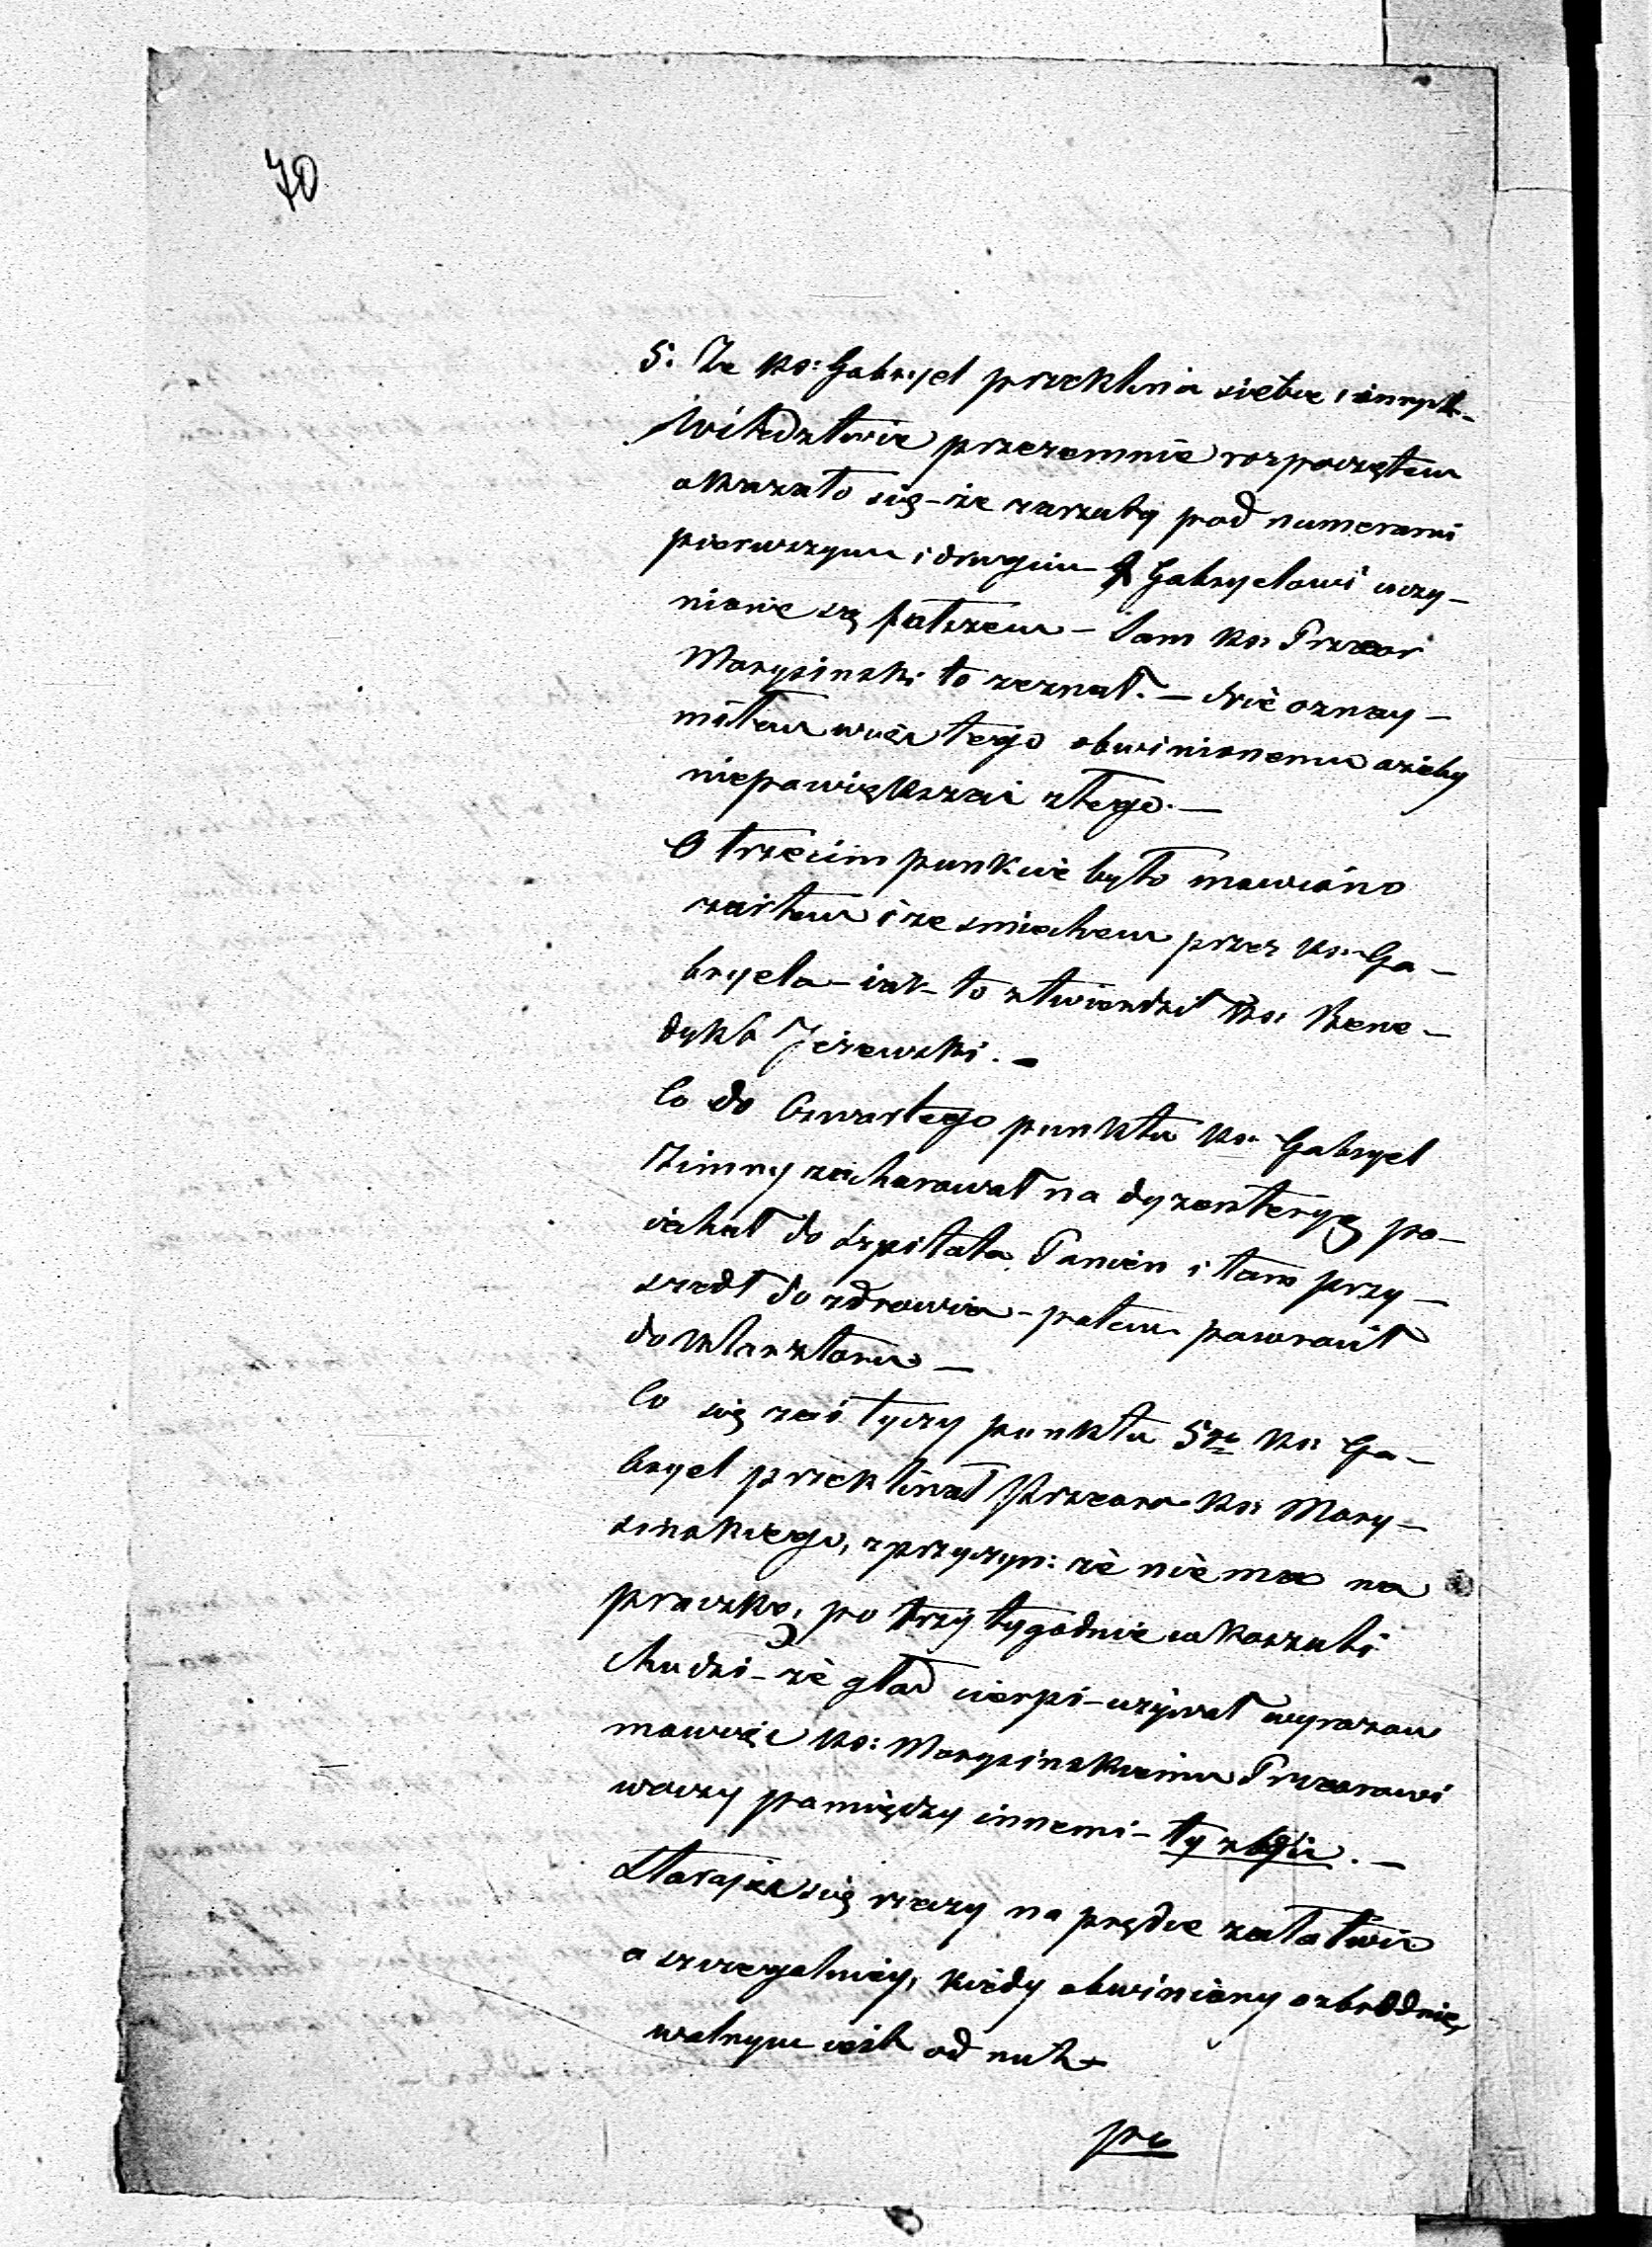 70
5. Że ks: Gabryel przeklina siebie i innych.
W śledztwie przezemnie rozpoczętem
okazało się – że zarzuty pod numerami
pierwszym i drugim Gabryelowi uczy–
nione są fałszem – sam ks: Przeor
Marysinski to zeznał. – Nie oznay–
miłem więc tego obwinionemu ażeby
niepowiększać złego. –
O trzecim punkcie było mowiono
żartem i ze smiechem przez ks: Ga–
bryela – iak to stwierdził ks: Bene–
dykt Jeżewski. –
Co do Czwartego punktu ks: Gabryel
Zimny zachorował na dyzenteryę po–
iechał do szpitala Panien i tam przy–
szedł do zdrowia – potem powrócił
do klasztoru –
Co się zaś tyczy punktu 5go ks: Ga–
bryel przeklinał Przeora ks: Mary–
sinskiego, z przyczyn: że nie ma na
praczkę, po trzy tygodnie w koszuli
chudzi – że głód cierpi – używał wyrazow
mowiąc ks: Marysinskiemu Przeorowi
w oczy pomiędzy innemi – ty zbóju. –
Staraiąc się rzeczy na prędce załatwić
a szczegolniey, kiedy obwiniony o zbrodnię,
wolnym iest od nich
po